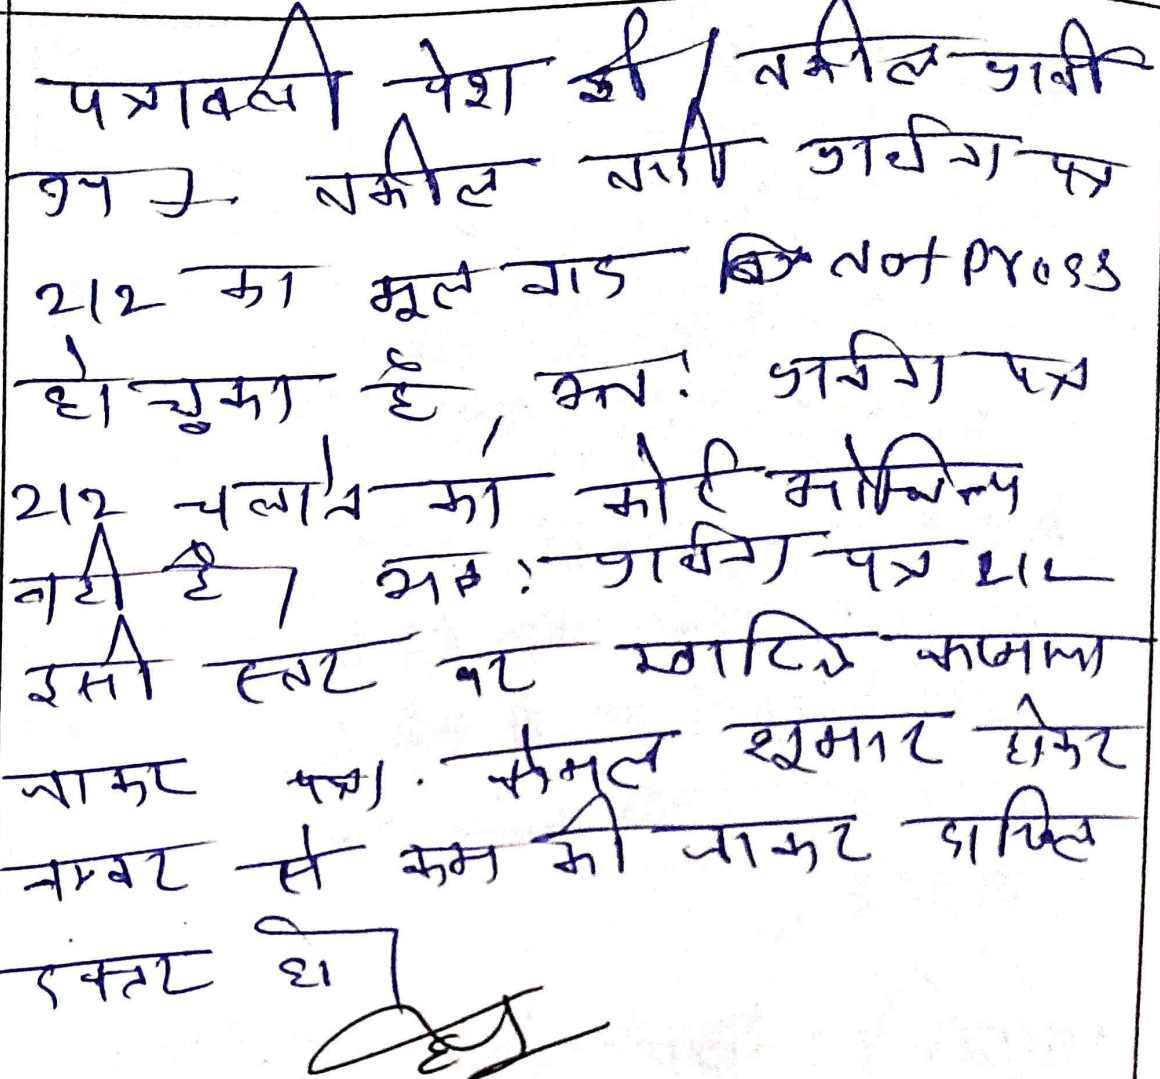 पत्रावली पेश हुई। वकील प्रार्थी
उप०। वकील प्रार्थना पत्र
212 का मूल वाद Not Press
हो चुका है, अतः प्रार्थना पत्र
212 चलाने का कोई औचित्य
नही है। अतः प्रार्थना पत्र 212
इसी स्तर पर खारिज किया
जाकर पत्रा. फैसल शुमार होकर
नम्बर से कम की जाकर दाखिल
दफ्तर हो।